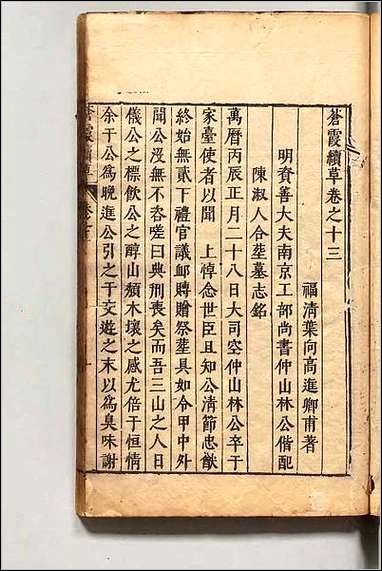 蒼霞續草卷之十三
福清葉向高進卿甫著
明資善大夫南京工部尚書仲山林公偕配
陳淑人合塟墓志銘
萬曆丙辰正月二十八日大司空仲山林公卒于
家臺使者以聞　上悼念世臣且知公清節忠猷
終始無貳下禮官議䘏賻贈祭塟具如令甲中外
聞公沒無不咨嗟曰典刑喪矣而吾三山之人日
儀公之標飲公之醇山頹木壞之感尤倍于恒情
余于公為晚進公引之于交遊之末以為臭味謝
蒼霞續草